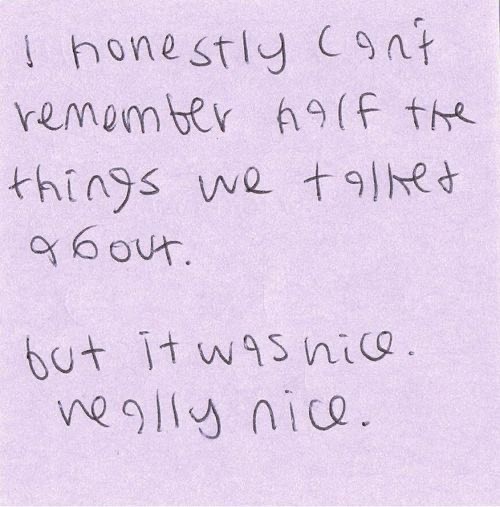 I honestly can't
remember half the
things we talked
about.
but it was nice.
really nice.